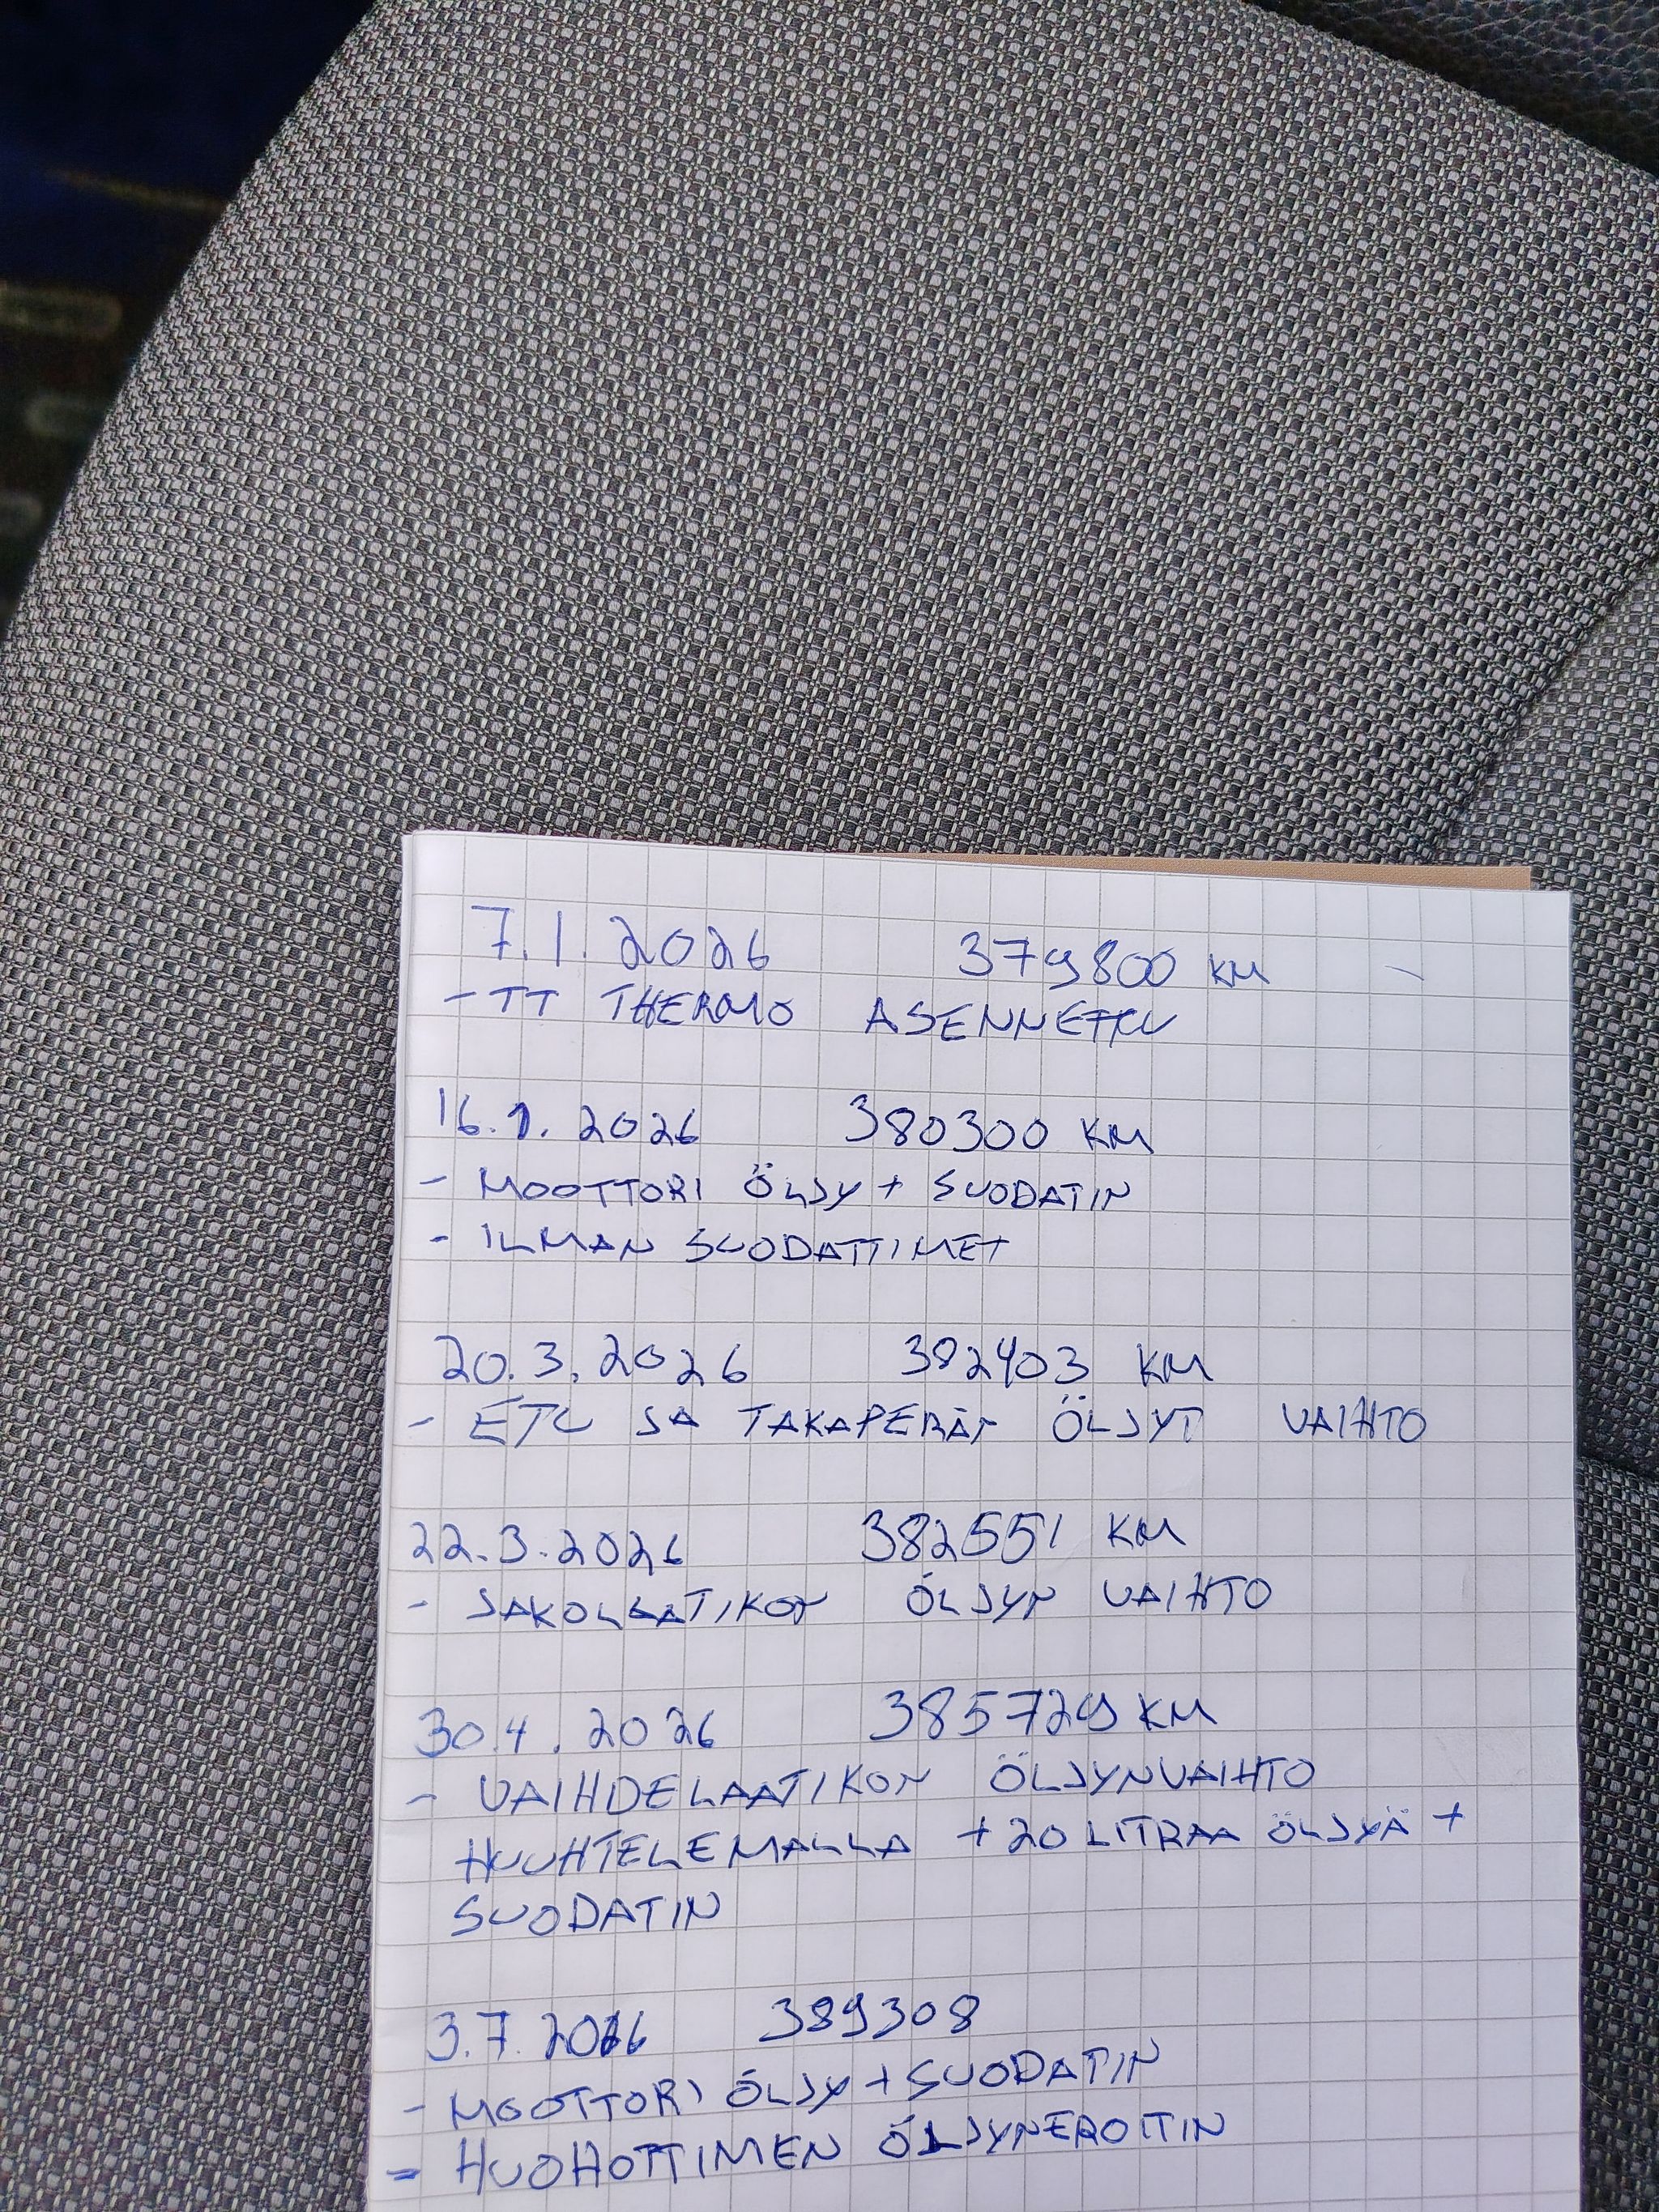 7.1.2026 379800 KM
- TT THERMO ASENNETTU
16.1.2026 380300 KM
- MOOTTORI ÖLJY + SUODATIN
- ILMAN SUODATTIMET
20.3.2026 382403 KM
- ETU JA TAKAPERÄN ÖLJYT VAIHTO
22.3.2026 382551 KM
- JAKOLAATIKON ÖLJYN VAIHTO
30.4.2026 385729 KM
- VAIHDELAATIKON ÖLJYNVAIHTO
HUUHTELEMALLA +20 LITRAA ÖLJYÄ +
SUODATIN
3.7.2026 389308
- MOOTTORI ÖLJY + SUODATIN
- HUOHOTTIMEN ÖLJYNEROITIN